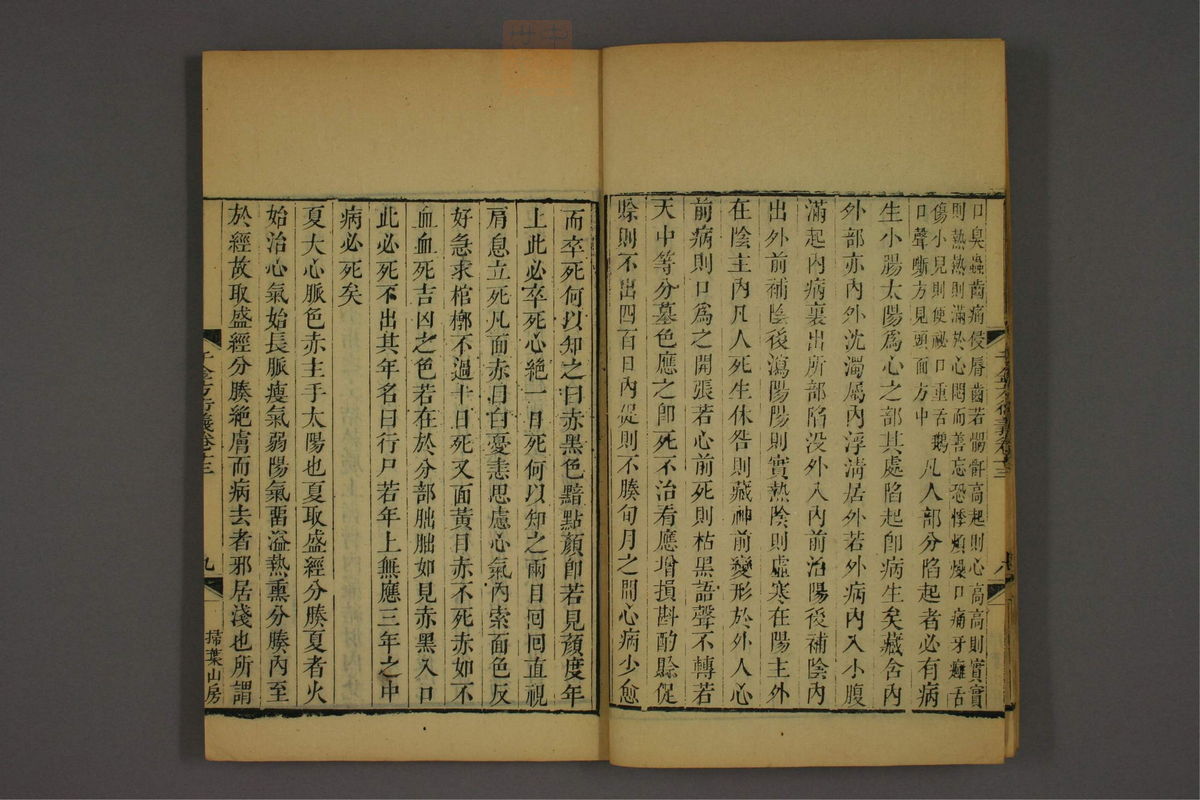 口臭蟲齒痛侵唇齒若髑骬高起則心高高則實實
則熱熱則滿於心悶而善忘恐悸煩燥口痛牙癰舌
傷小兒則便祕口重舌鵝
口聲嘶方見頭面方中 凡人部分陷起者必有病
生小腸太陽爲心之部其處陷起卽病生矣藏含內
外部亦內外沈濁屬內浮淸居外若外病內入小腹
滿起內病裏出所部陷没外入內前治陽後補陰內
出外前補陰後瀉陽陽則實熱陰則虛寒在陽主外
在陰主內凡人死生休咎則藏神前變形於外人心
前病則口爲之開張若心前死則枯黑語聲不轉若
天中等分墓色應之卽死不治看應增損斟酌賖促
賖則不出四百日內促則不腠旬月之間心病少愈
而卒死何以知之曰赤黑色黯點顏卽若見顏度年
上此必卒死心絕一日死何以知之兩目囘囘直視
肩息立死凡面赤目白憂恚思慮心氣內索面色反
好急求棺槨不過十日死又面黃目赤不死赤如不
血血死吉凶之色若在於分部朏朏如見赤黑入口
此必死不出其年名曰行尸若年上無應三年之中
病必死矣
夏大心脈色赤主于太陽也夏取盛經分腠夏者火
始治心氣始長脈瘦氣弱陽氣畱溢熱熏分腠內至
於經故取盛經分腠絕膚而病去者邪居淺也所謂
千金方衍義卷十三
九
掃葉山房